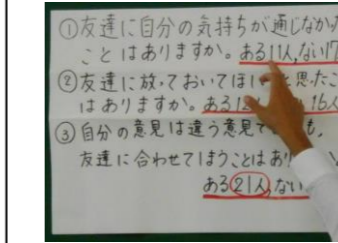 ①友達に自分の気持ちが通じなかった
ことはありますか。ある11人,ない17
②友達に放っておいてほしいと思ったこ
はありますか。ある12 16人
③自分の意見は違う意見で も,
友達に合わせてしまうことはあり
ある21人,ない